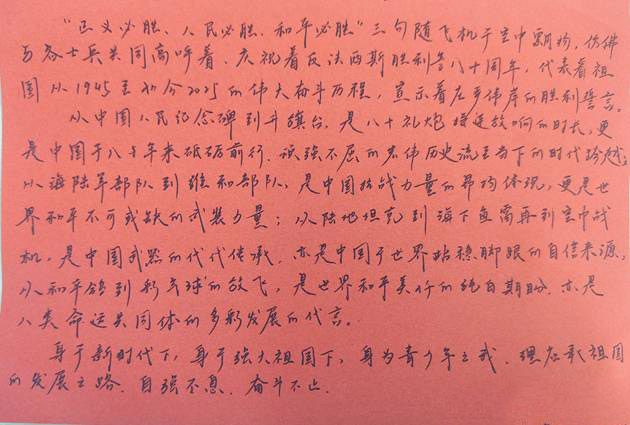 “正义必胜、人民必胜、和平必胜”三句随飞机于空中飘扬，仿佛
与各士兵共同高呼着、庆祝着反法西斯胜利八十周年，代表着祖
国从1945至如今2025的伟大奋斗历程，宣示着庄严伟岸的胜利誓言。
从中国人民纪念碑到升旗台，是八十礼炮接连放响的时长，更
是中国于八十年来砥砺前行、顽强不屈的宏伟历史流至当下的时代跨越；
从海陆军部队到维和部队，是中国抗战力量的昂扬体现，更是世
界和平不可或缺的武装力量；从陆地坦克到海下鱼雷再到空中战
机，是中国武器的代代传承、亦是中国于世界站稳脚跟的自信来源，
从和平鸽到彩气球的放飞，是世界和平美好的纯白期盼、亦是
人类命运共同体的多彩发展的代言。
身于新时代下，身于强大祖国下，身为青少年之我、理应承祖国
的发展之路、自强不息、奋斗不止